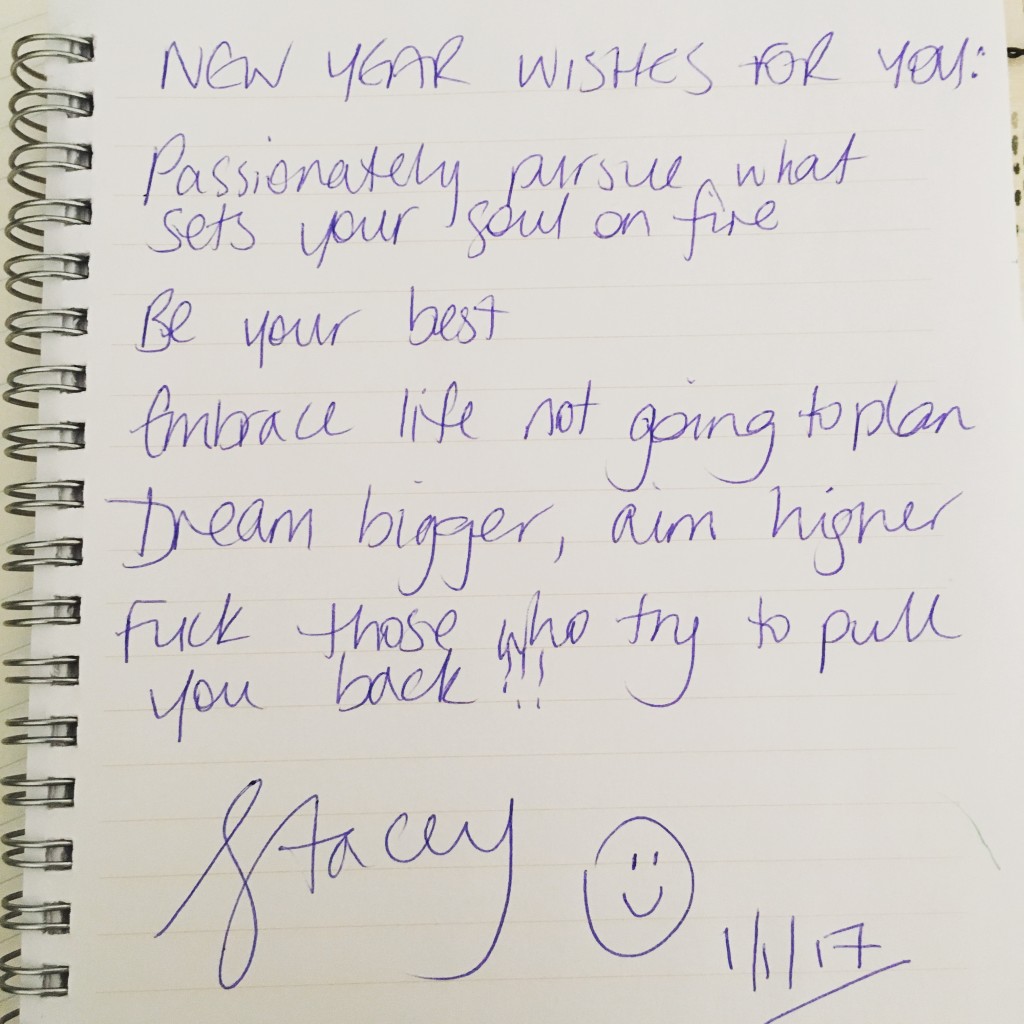 NEW YEAR WISHES FOR YOU:
Passionately pursue what
sets your soul on fire
Be your best
Embrace life not going to plan
Dream bigger, aim higher
Fuck those who try to pull
you back !!!
Stacey
1/1/17